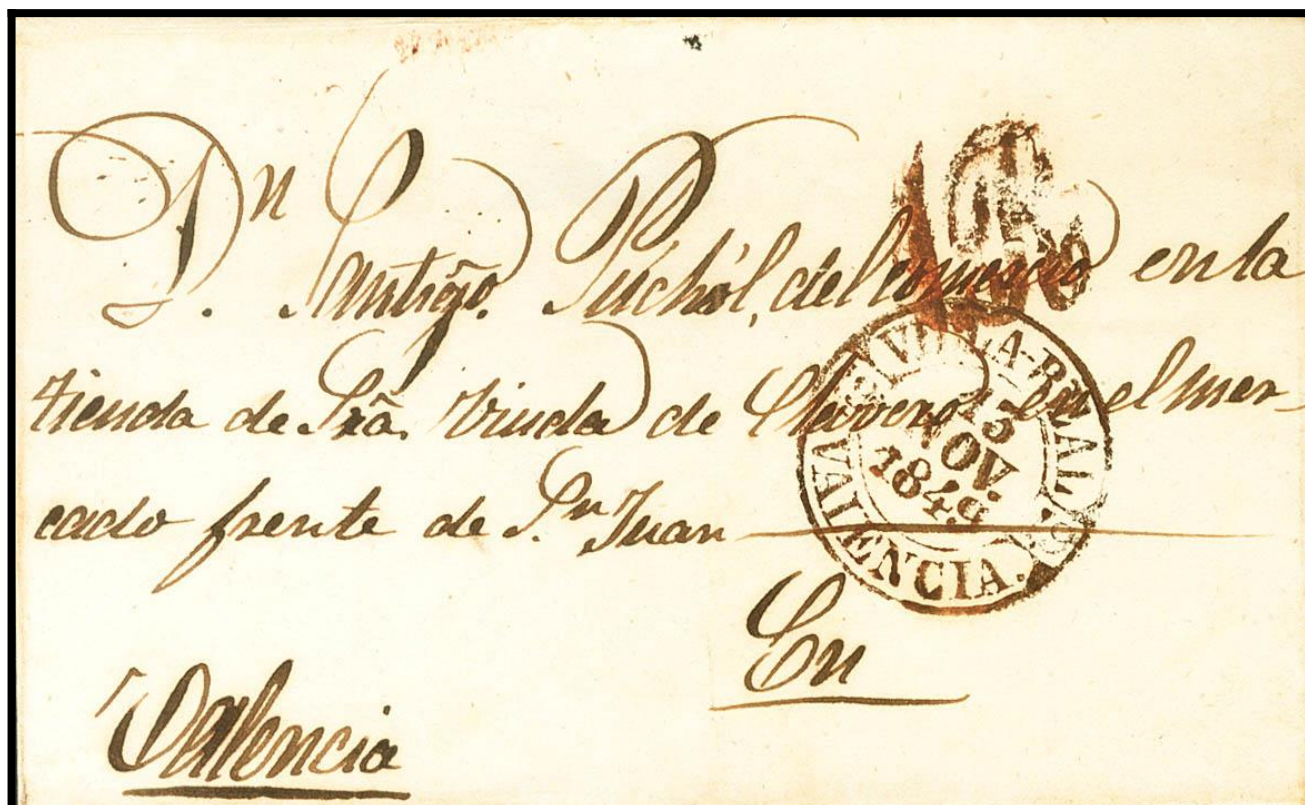 Dn Santigo. Puchol, del comercio en la
tienda de Sra. Viuda de Clavero en el mer-
cado frente de Sn Juan
En
Valencia
VILLA-REAL
15
NOV.
1849
VALENCIA.